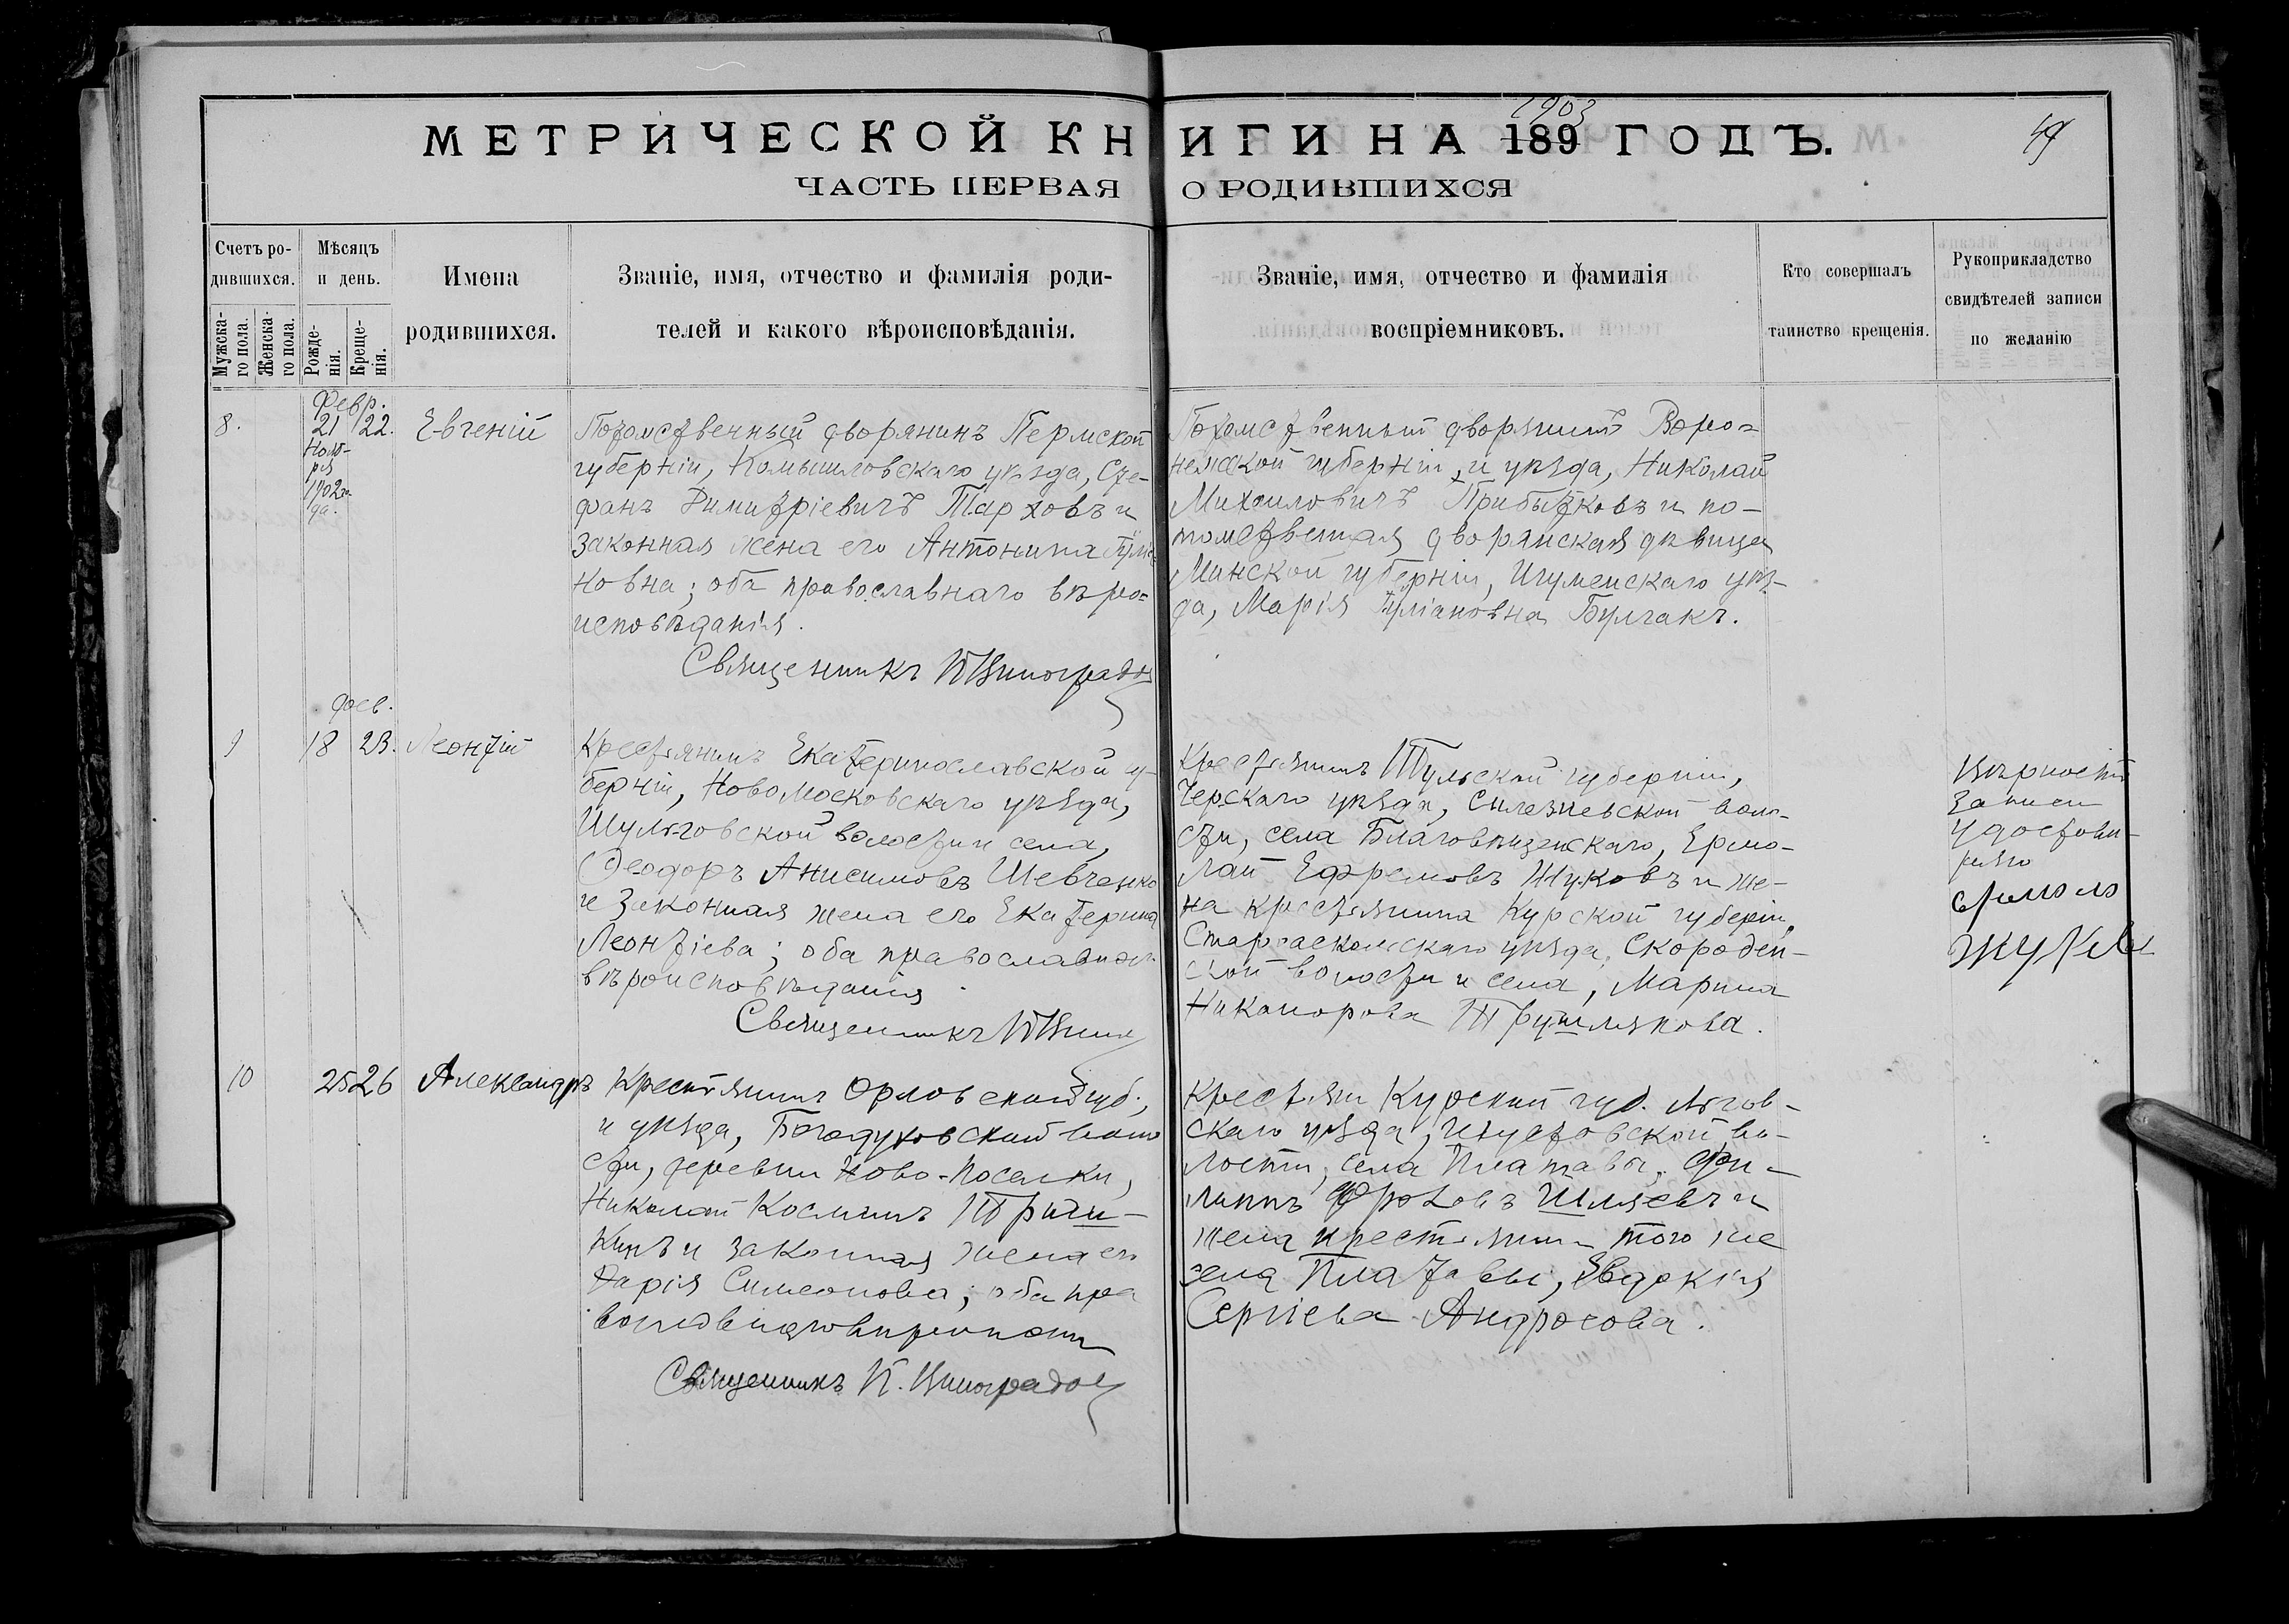 МЕТРИЧЕСКОЙ КНИГИ НА 189 ГОДЪ.
1903
ЧАСТЬ ПЕРВАЯ О РОДИВШИХСЯ
Счетъ родившихся.
Мужскаго пола.
Женскаго пола.
Мѣсяцъ и день.
Рожденія.
Крещенія.
Имена родившихся.
Званіе, имя, отчество и фамилія роди-
телей и какого вѣроисповѣданія.
Званіе, имя, отчество и фамилія
воспріемниковъ.
Кто совершалъ
таинство крещенія.
Рукоприкладство
свидѣтелей записи
по желанію
Февр.
8. 21 22. Евгеній
Нояб-
ря
1902 го-
да.
Потомственный дворянинъ Пермской
губерніи, Камышловскаго уѣзда, Сте-
фанъ Димитріевичъ Тарховъ и
законная жена его Антонина Іуліа
новна; оба православнаго вѣро-
исповѣданія.
Священникъ П Виноградов
Потомственный дворянинъ Воро-
нежской губерніи, и уѣзда, Николай
Михаиловичъ Прибытковъ и по-
томственная дворянская дѣвица
Минской губерніи, Игуменскаго уѣз-
да, Марія Іуліановна Булгакъ.
Фев.
9 18 23. Леонтій
Крестьянинъ Екатеринославской гу-
берніи, Новомосковскаго уѣзда,
Шульговской волости и села,
Ѳеодоръ Анисимовъ Шевченко
и законная жена его Екатерина
Леонтіева; оба православнаго
вѣроисповѣданія
Священникъ П Вин
Крестьянинъ Тульской губерніи,
Черскаго уѣзда, воло-
сти, села Благовѣщенскаго, Ермо-
лай Ефремовъ Жуковъ и же-
на крестьянина Курской губерніи,
Старооскольскаго уѣзда, Скороден-
ской волости и села, Марина
Никанорова
Вѣрность
записи
удостовѣ-
ряю
Ермола
Жуков
10 25 26 Александръ
Крестьянинъ Орловской губ.,
и уѣзда, Богодуховской воло
сти, деревни Ново-Поселки,
Николай Косминъ
и законная жена его
Дарія Симеонова; оба пра
Священникъ П. Виноградов
Крестьян Курской губ. Льгов-
скаго уѣзда, во-
лости, села Платавы, Фи-
липпъ и
жена крестьянина того же
села Платавы, Евдокія
Сергіева Андросова.